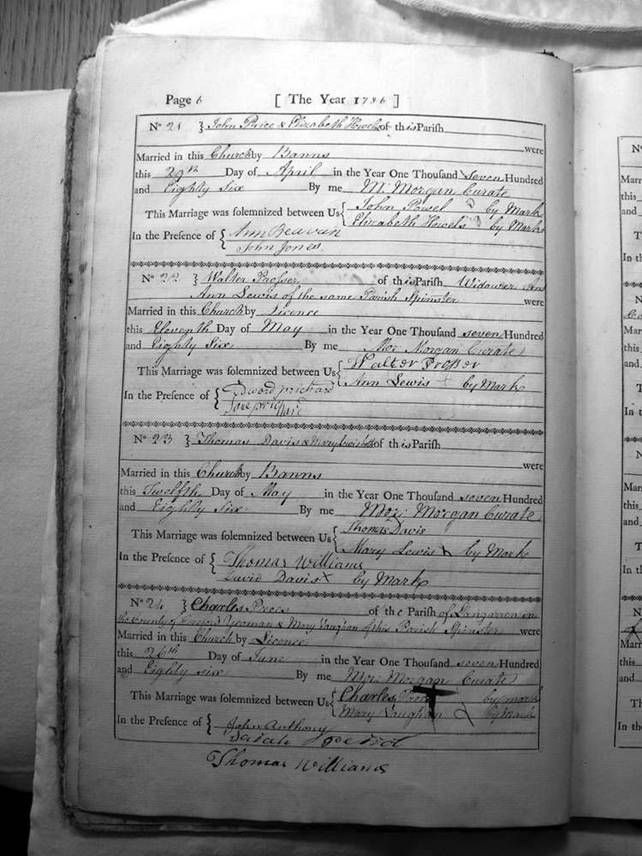 Page 6 [ The Year 1786 ]
No 21 } John Price & Elizabeth Howels of this Parish
were
Married in this Church by Banns
this 29th Day of April in the Year One Thousand seven Hundred
and Eighty Six By me M. Morgan Curate
This Marriage was solemnized between Us { John Powel by Mark
Elizabeth Howels by Mark
In the Presence of { Ann Beavan
John Jones
No 22 } Walter Prosser of this Parish Widower and
Ann Lewis of the same Parish Spinster were
Married in this Church by Licence
this Eleventh Day of May in the Year One Thousand seven Hundred
and Eighty Six By me Mor: Morgan Curate
This Marriage was solemnized between Us { Walter Proßer
Ann Lewis + by Mark
In the Presence of { Edward prichard
No 23 } Thomas Davis & Mary Lewis both of this Parish
were
Married in this Church by Banns
this Twelfth Day of May in the Year One Thousand seven Hundred
and Eighty Six By me Mor: Morgan Curate
This Marriage was solemnized between Us { Thomas Davis
Mary Lewis by Mark
In the Presence of { Thomas Williams
David Davis x by Mark
No 24 } Charles Prees of the Parish of Langarren in
the County of Hereford Yeoman & Mary Vaughan of this Parish Spinster were
Married in this Church by Licence
this 26th Day of June in the Year One Thousand seven Hundred
and Eighty six By me Mor: Morgan Curate
This Marriage was solemnized between Us { Charles by mark
Mary Vaughan by Mark
In the Presence of { John Anthony
Sarah
Thomas Williams